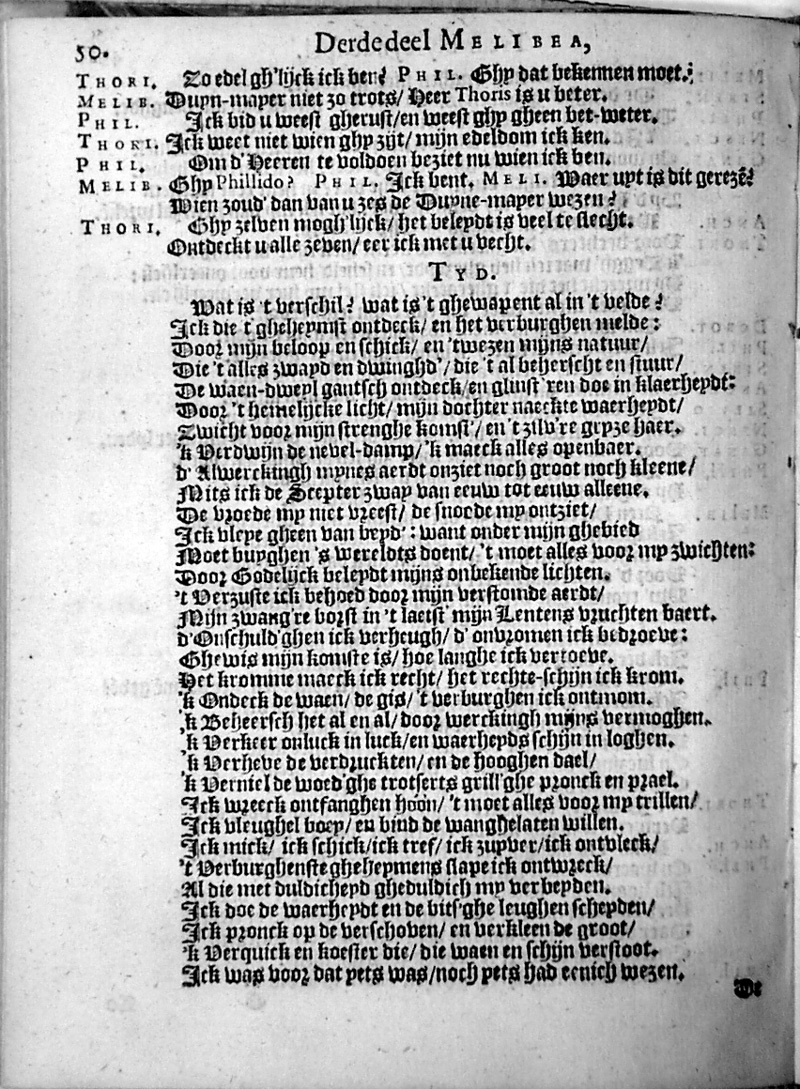 50. Derde deel MELIBEA,
THORI. Zo edel gh'lijck ick ben? PHIL. Ghy dat bekennen moet.
MELIB. Duyn-mayer niet zo trots/ Heer Thoris is u beter.
PHIL. Ick bid u weest gherust/en weest ghy gheen bet-weter.
THORI. Ick weet niet wien ghy zijt/ mijn edeldom ick ken.
PHIL. Om d'Heeren te voldoen beziet nu wien ick ben.
MELIB. Ghy Phillido? PHIL. Ick bent. MELI. Waer uyt is dit gerezē?
Wien zoud' dan van u zes de Duyne-mayer wezen?
THORI. Ghy zelven mogh'lijck/ het beleydt is veel te slecht.
Ontdeckt u alle zeven/ eer ick met u vecht.
TYD.
Wat is 't verschil? wat is 't ghewapent al in 't velde?
Ick die t'gheheymst ontdeck/ en het verburghen melde:
Door mijn beloop en schick/ en 'twezen mijns natuur/
Die 't alles zwayd en dwinghd'/ die 't al beherscht en stuur/
De waen-dweyl gantsch ontdeck/en glinst'ren doe in klaerheydt:
Door 't hemelijcke licht/ mijn dochter naeckte waerheydt/
Zwicht voor mijn strenghe komst'/ en 't zilv're gryze haer.
'k Verdwijn de nevel-damp/ 'k maeck alles openbaer.
d' Alwerckingh mynes aerdt onziet noch groot noch kleene/
Mits ick de Scepter zway van eeuw tot eeuw alleene.
De vroede my niet vreest/ de snoede my ontziet/
Ick vleye gheen van beyd': want onder mijn ghebied
Moet buyghen 's wereldts doent/ 't moet alles voor my zwichten:
Door Godelijck beleydt mijns onbekende lichten.
't Verzuste ick behoed door mijn verstomde aerdt/
Mijn zwang're borst in 't laetst' mijn Lentens vruchten baert.
d'Onschuld'ghen ick verheugh/ d' onvromen ick bedroeve:
Ghewis mijn komste is/ hoe langhe ick vertoeve.
Het kromme maeck ick recht/ het rechte-schijn ick krom.
'k Ondeck de waen/ de gis/ 't verburghen ick ontmom.
'k Beheersch het al en al/ door werckingh mijns vermoghen.
'k Verkeer onluck in luck/en waerheyds schijn in loghen.
'k Verheve de verdruckten/ en de hooghen dael/
'k Verniel de woed'ghe trotserts grill'ghe pronck en prael.
Ick wreeck ontfanghen hoon/ 't moet alles voor my trillen/
Ick vleughel boey/ en bind de wanghelaten willen.
Ick mick/ ick schick/ick tref/ ick zuyver/ick ontvleck/
't Verburghenste gheheymens slape ick ontwreck/
Al die met duldicheyd gheduldich my verbeyden.
Ick doe de waerheydt en de bits'ghe leughen scheyden/
Ick pronck op de verschoven/ en verkleen de groot/
'k Verquick en koester die/ die waen en schijn verstoot.
Ick was voor dat yets was/noch yets had eenich wezen.
De